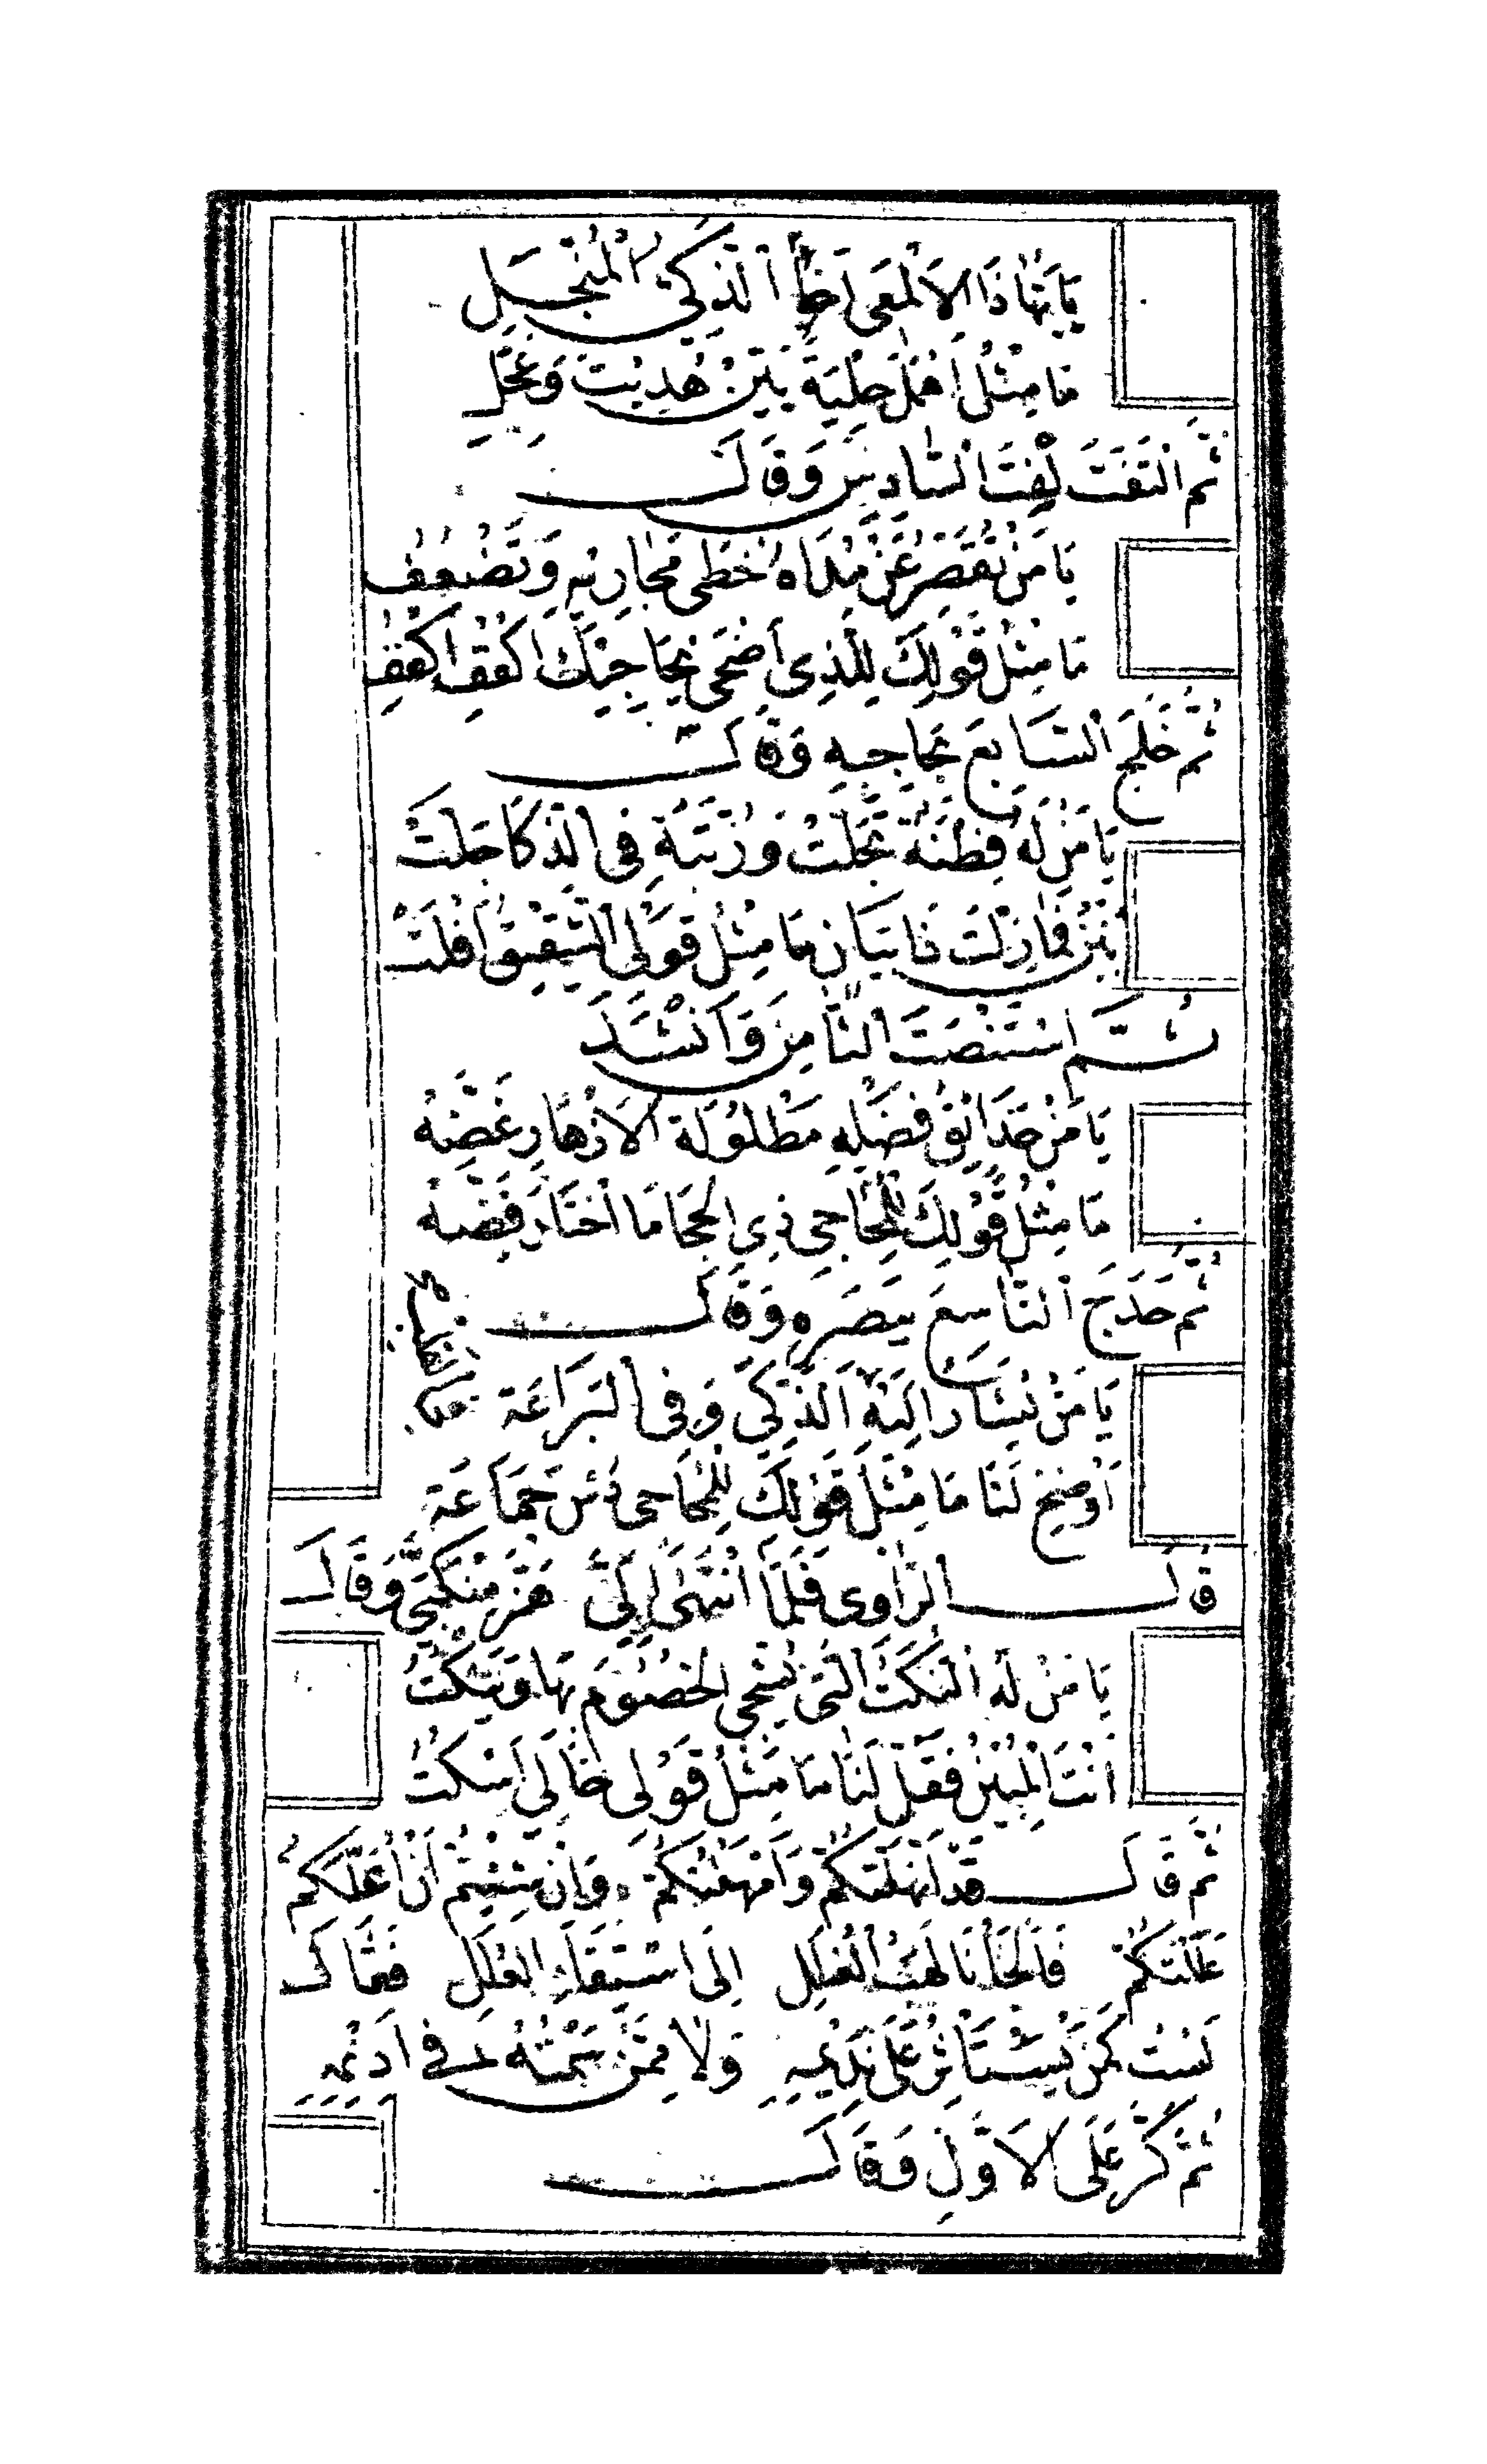 يَا أَيُّهَا ذَا الأَلْمَعِى أَخَا الذَّكِيِّ الْمُنْجَلِ
مَا مِثْلُ أَهْمَلَ حِلْيَةً بَيِّنْ هُدِيتَ وَعَجِّلِ
ثُمَّ الْتَفَتَ لِفْتَ السَّادِسِ وَقَالَ
يَا مَنْ تُقَصِّرُ عَنْ مَدَاهُ خُطَى مُجَارِيْهِ وَتَضْعُفُ
مَا مِثْلُ قَوْلِكَ لِلَّذِى أَضْحَى يُحَاجِيْكَ اكْفُفِ اكْفُفِ
ثُمَّ خَلَجَ السَّابِعَ بِحَاجِبِهِ وَقَالَ
يَا مَنْ لَهُ فِطْنَةٌ تَجَلَّتْ وَرُتْبَةٌ فِى الذَّكَا جَلَّتْ
بَيِّنْ فَمَا زِلْتَ ذَا بَيَانٍ مَا مِثْلُ قَوْلِى الشَّقِيقُ أَفْلَتْ
ثُمَّ اسْتَنْصَتَ الثَّامِنَ وَأَنْشَدَ
يَا مَنْ حَدَائِقُ فَضْلِهِ مَطْلُولَةُ الأَزْهَارِ غَضَّهْ
مَا مِثْلُ قَوْلِكَ لِلْمُحَاجِى ذِى الْحِجَا مَا اخْتَارَ فِضَّهْ
ثُمَّ حَدَجَ التَّاسِعَ بِبَصَرِهِ وَقَالَ
يَا مَنْ يُشَارُ إِلَيْهِ الذَّكِيِّ وَفِى الْبَرَاعَة
أَوْضِحْ لَنَا مَا مِثْلُ قَوْلِكَ لِلْمُحَاجِى دُسْ جَمَاعَة
قَالَ الرَّاوِى فَلَمَّا انْتَهَى إِلَيَّ هَزَّ مَنْكِبَيَّ وَقَالَ
يَا مَنْ لَهُ النُّكَتُ الَّتِى يُشْجِى الْخُصُومَ بِهَا وَيُنْكِتُ
أَنْتَ الْمُبِينُ فَقُلْ لَنَا مَا مِثْلُ قَوْلِى خَالِيَ اسْكُتُ
ثُمَّ قَالَ قَدْ أَنْهَلْتُكُمْ وَأَمْهَلْتُكُمْ وَإِنْ شِئْتُمْ أَنْ أُعِلَّكُمْ
عَلَلْتُكُمْ فَأَلْجَأَنَا لَهَبُ الْغُلَلِ إِلَى اسْتِسْقَاءِ الْعَلَلِ فَقَالَ
لَسْتُ كَمَنْ يَسْتَأْثِرُ عَلَى نَدِيمِهِ وَلَا مِمَّنْ سَمْنُهُ فِى أَدِيمِهِ
ثُمَّ كَرَّ عَلَى الأَوَّلِ وَقَالَ